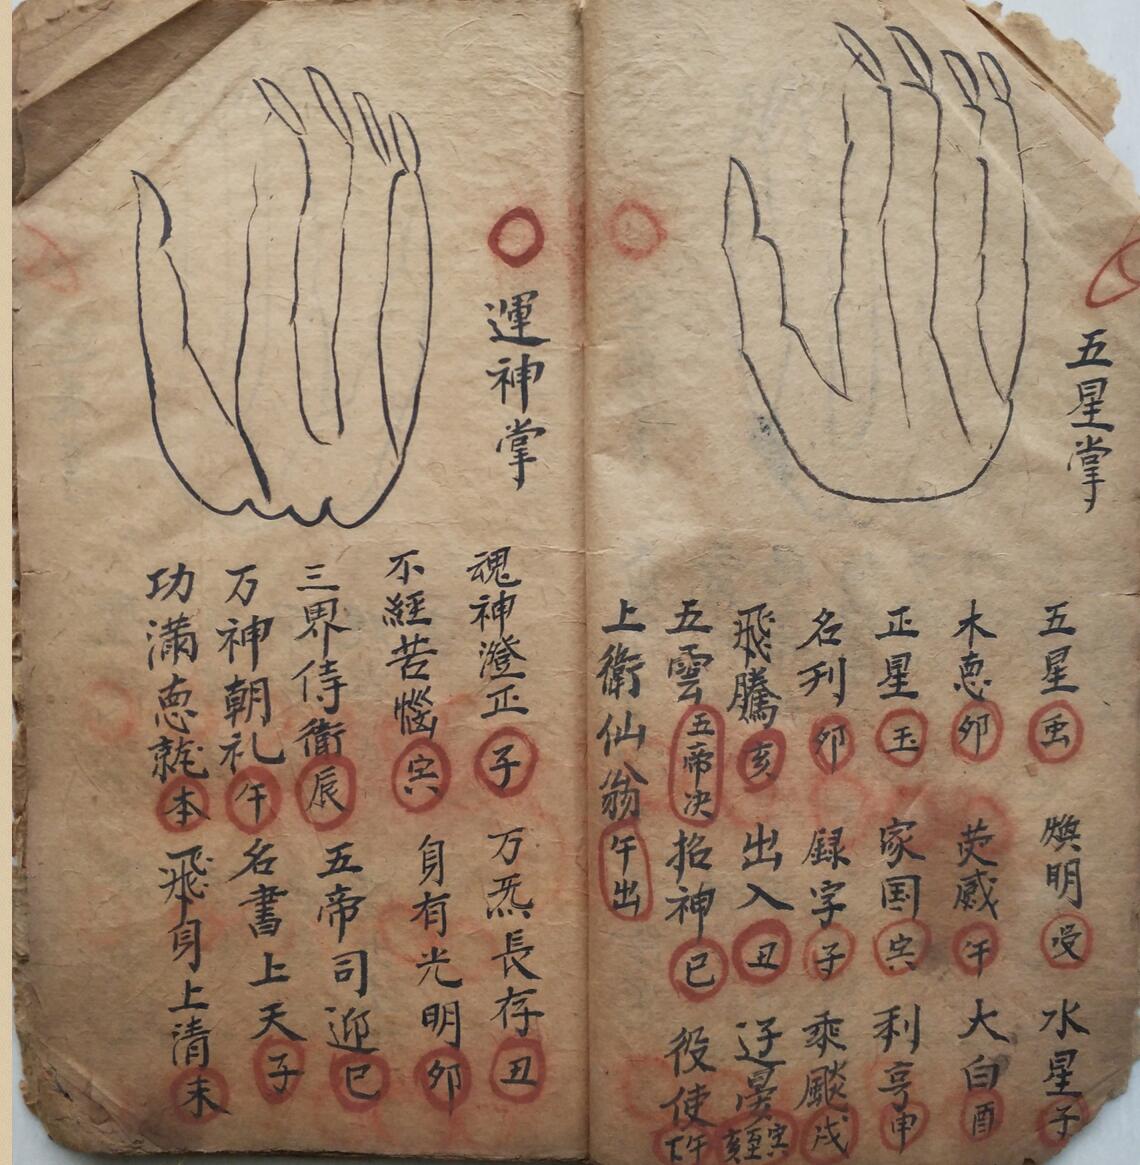 五星掌
五星 煥明 水星子
木恵卯 荧咸午 大白酉
正星玉 家国宾 利亨申
名刊卯 録字子 乘飚戌
飛騰亥 出入丑
五雲五帝决 招神巳 役使下午
上衛仙翁午出
運神掌
魂神澄正子 万炁長存丑
不經苦惱 身有光明卯
三界侍衛辰 五帝司迎巳
万神朝礼午 名書上天子
功满恵就本 飛身上清未